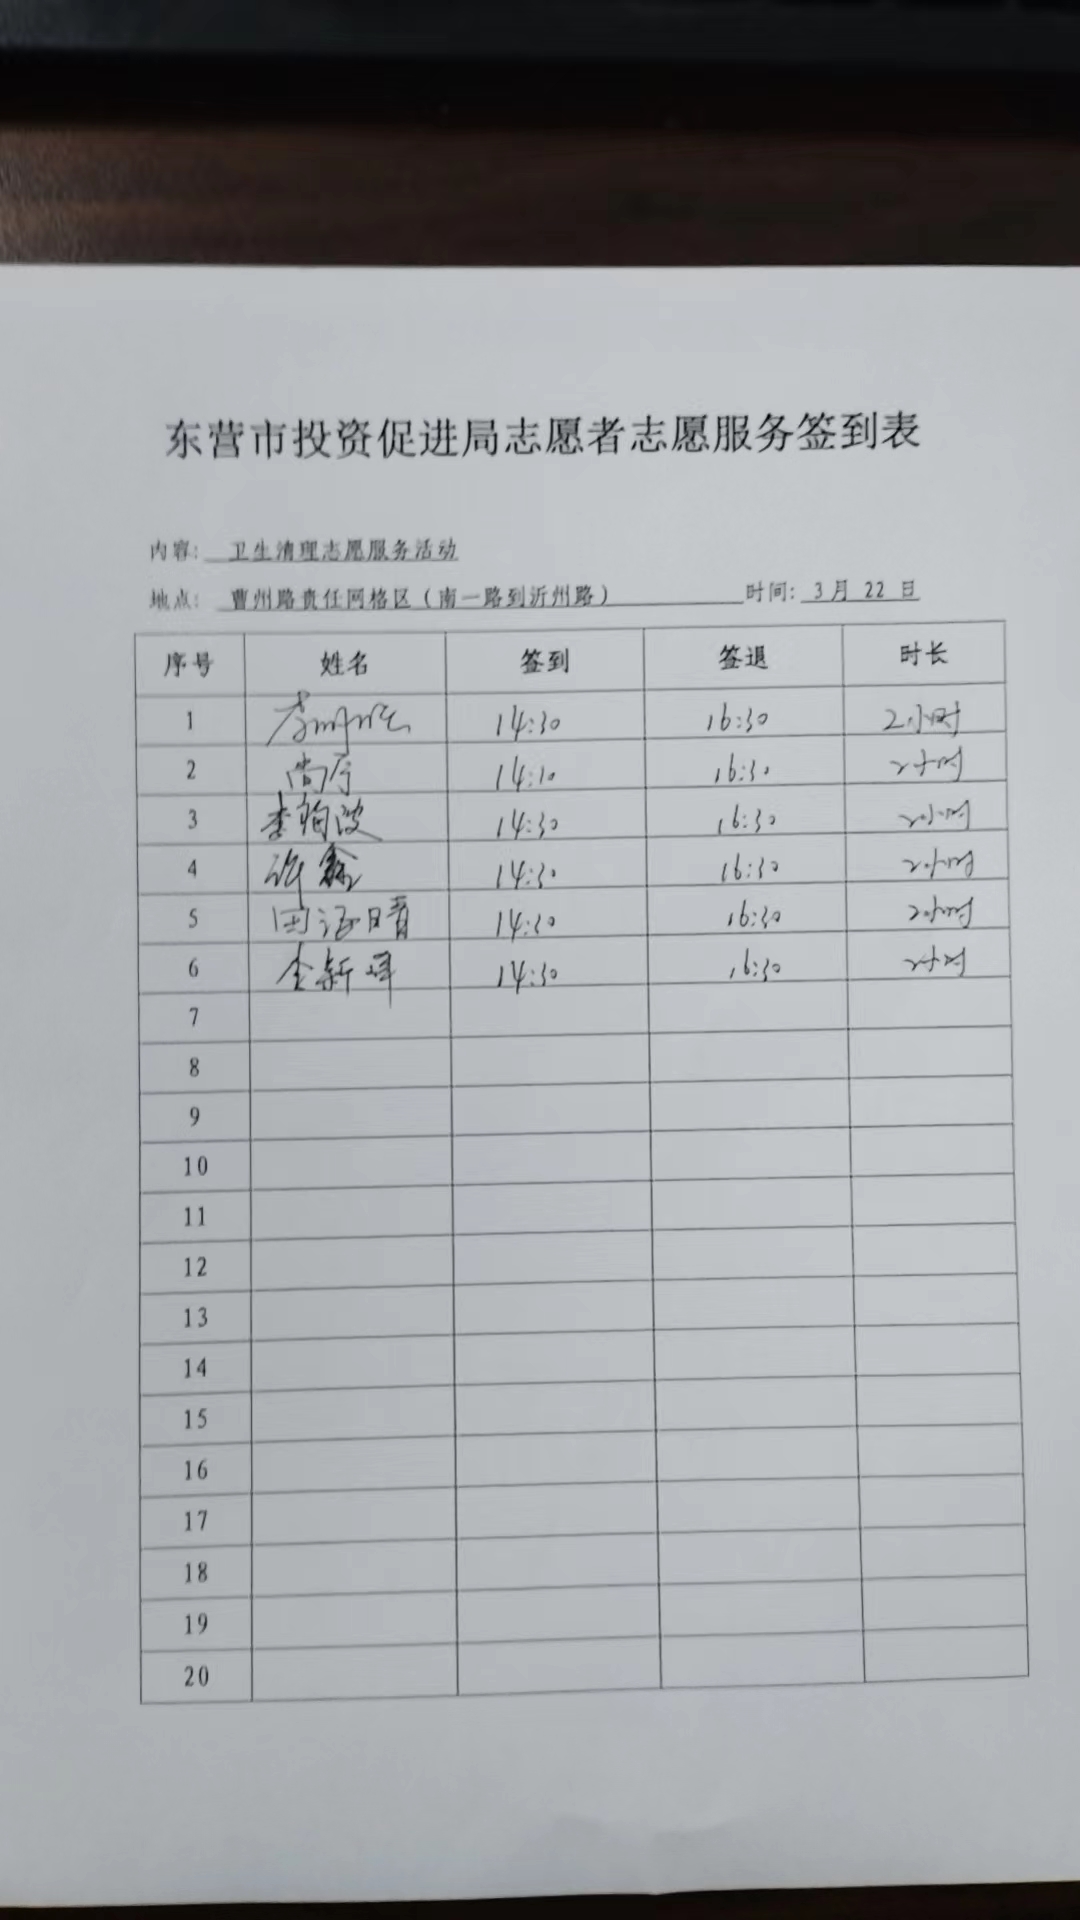 东营市投资促进局志愿者志愿服务签到表
内容: 卫生清理志愿服务活动
地点: 曹州路责任网格区(南一路到沂州路) 时间: 3月 22 日
序号 姓名 签到 签退 时长
1 14:30 16:30 2小时
2 尚厅 14:10 16:30 2小时
3 14:30 16:30 2小时
4 许鑫 14:30 16:30 2小时
5 田证晴 14:30 16:30 2小时
6 李新峰 14:30 16:30 2小时
7
8
9
10
11
12
13
14
15
16
17
18
19
20